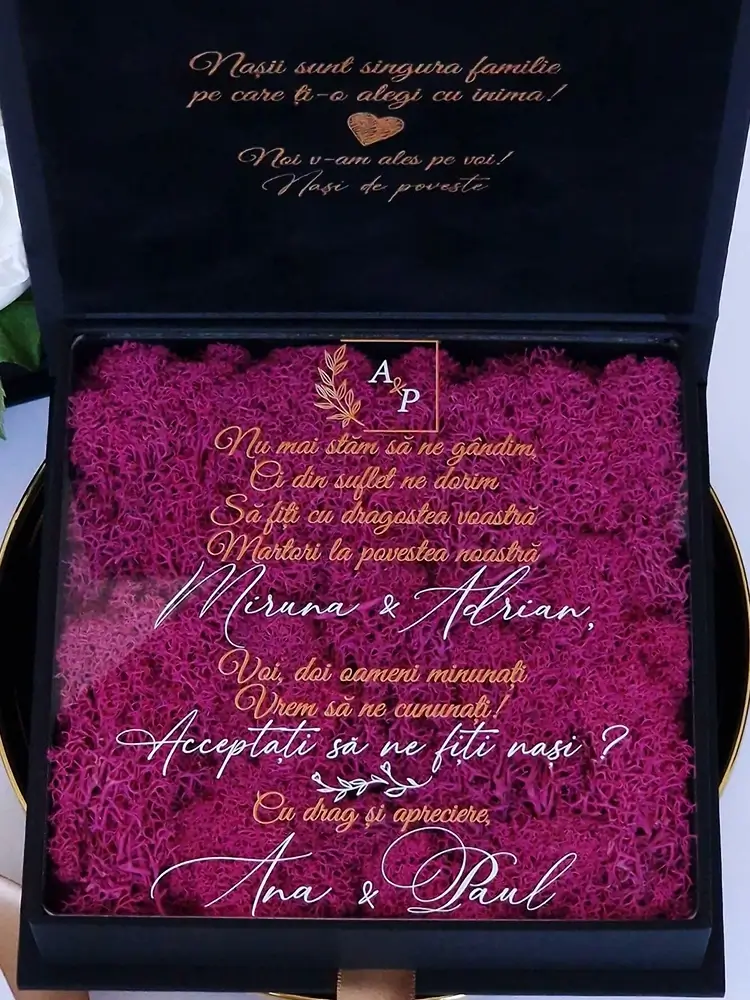 Nașii sunt singura familie
pe care ți-o alegi cu inima!
Noi v-am ales pe voi!
Nași de poveste
A & P
Nu mai stăm să ne gândim,
Ci din suflet ne dorim
Să fiți cu dragostea voastră
Martori la povestea noastră
Miruna & Adrian,
Voi, doi oameni minunați
Vrem să ne cununați!
Acceptați să ne fiți nași ?
Cu drag și apreciere,
Ana & Paul